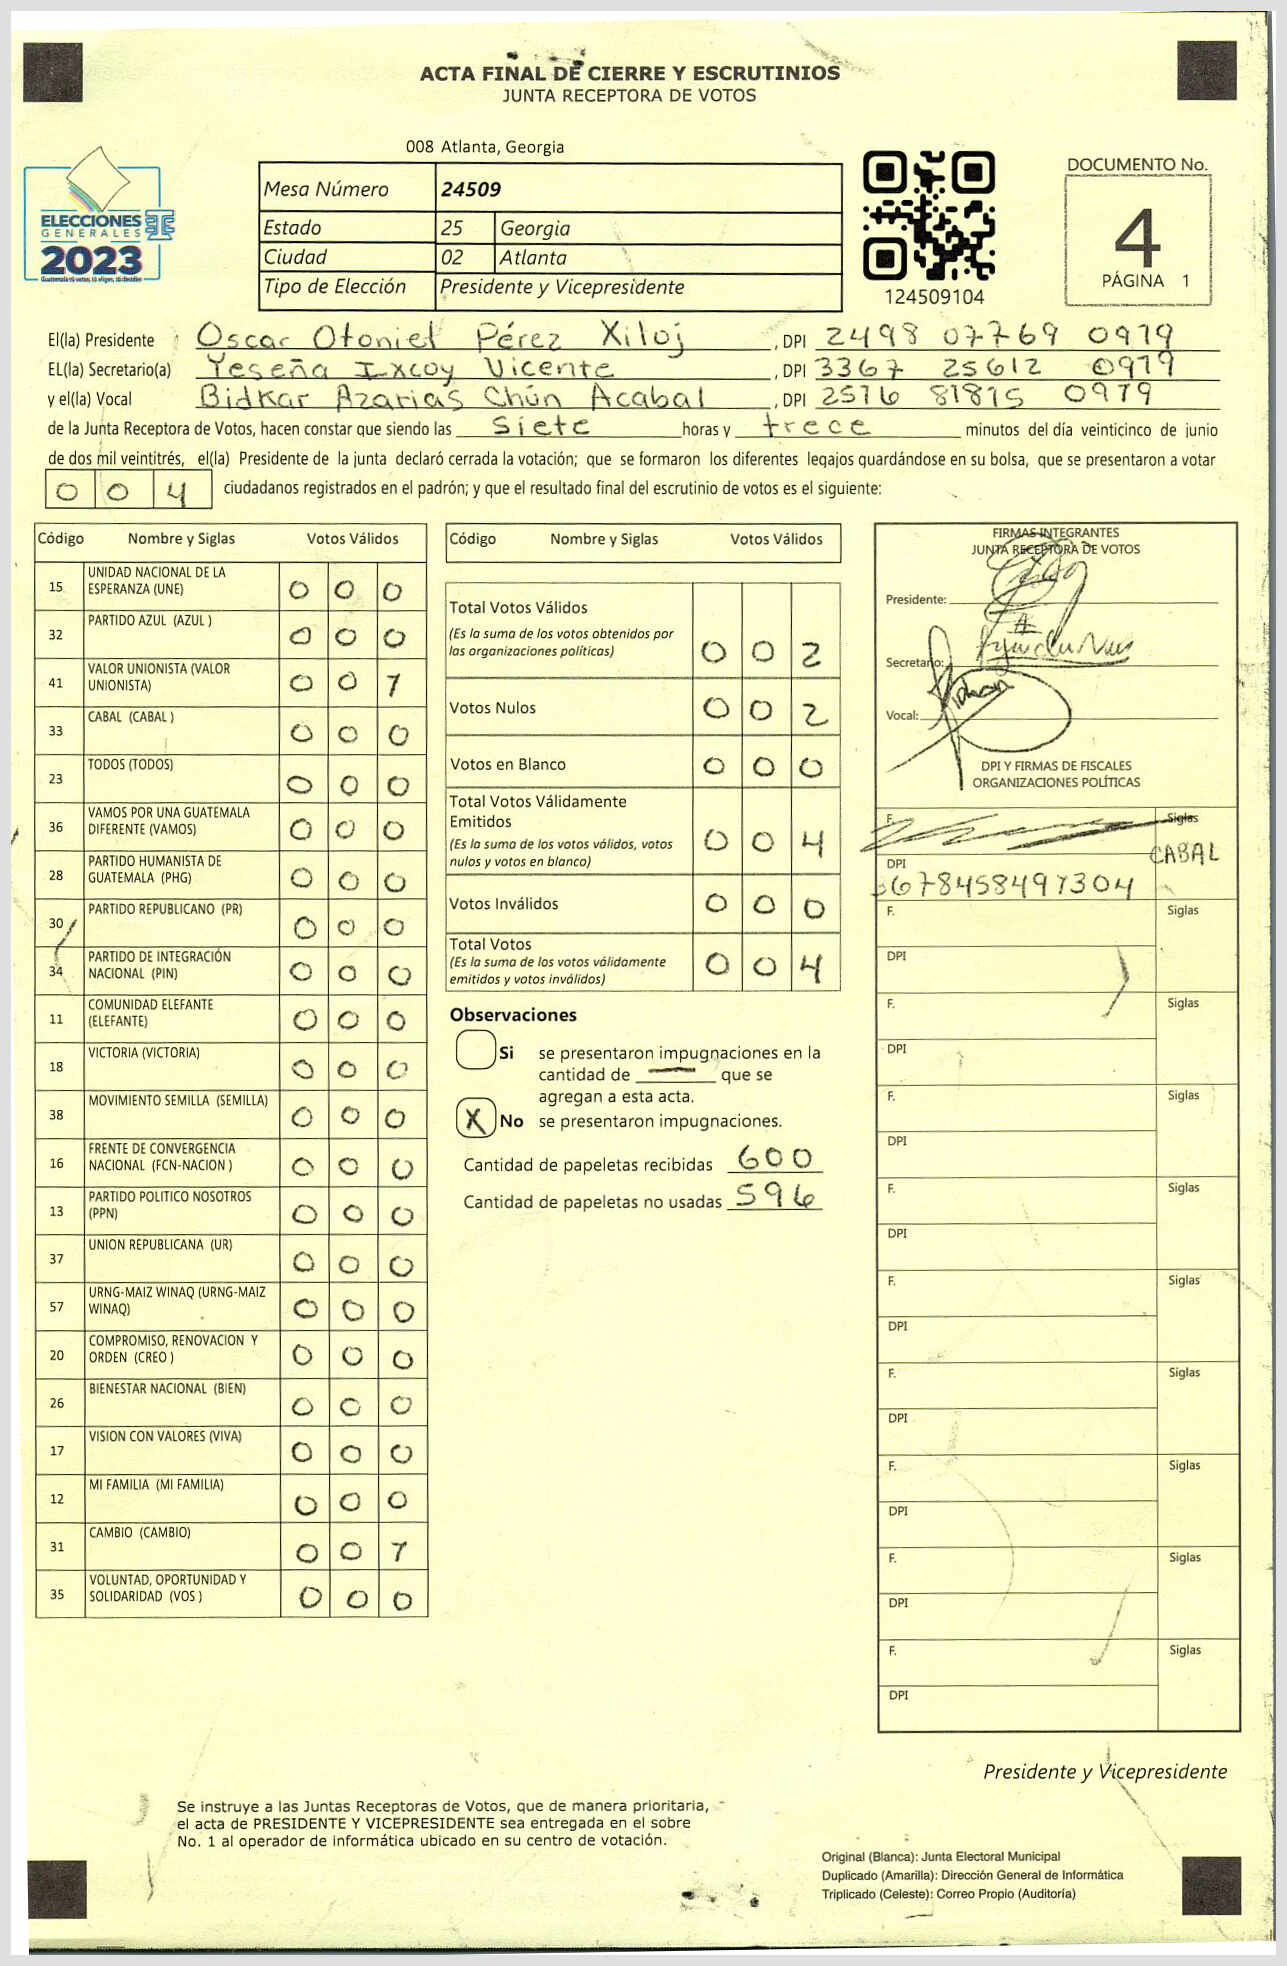 ACTA FINAL DE CIERRE Y ESCRUTINIOS
JUNTA RECEPTORA DE VOTOS
008 Atlanta, Georgia
ELECCIONES
GENERALES
2023
Mesa Número 24509
Estado 25 Georgia
Ciudad 02 Atlanta
Tipo de Elección Presidente y Vicepresidente
124509104
DOCUMENTO No.
4
PÁGINA 1
El(la) Presidente Oscar Otoniel Pérez Xiloj, DPI 2498 07769 0979
EL(la) Secretario(a) Yeseña Ixcoy Vicente, DPI 3367 25612 0979
y el(la) Vocal Bidkar Azarias Chún Acabal, DPI 2576 81815 0979
de la Junta Receptora de Votos, hacen constar que siendo las siete horas y trece minutos del día veinticinco de junio
de dos mil veintitrés, el(la) Presidente de la junta declaró cerrada la votación; que se formaron los diferentes legajos guardándose en su bolsa, que se presentaron a votar
0 0 4 ciudadanos registrados en el padrón; y que el resultado final del escrutinio de votos es el siguiente:
Código Nombre y Siglas Votos Válidos
15 UNIDAD NACIONAL DE LA
ESPERANZA (UNE) 0 0 0
32 PARTIDO AZUL (AZUL ) 0 0 0
41 VALOR UNIONISTA (VALOR
UNIONISTA) 0 0 1
33 CABAL (CABAL ) 0 0 0
23 TODOS (TODOS) 0 0 0
36 VAMOS POR UNA GUATEMALA
DIFERENTE (VAMOS) 0 0 0
28 PARTIDO HUMANISTA DE
GUATEMALA (PHG) 0 0 0
30 PARTIDO REPUBLICANO (PR) 0 0 0
34 PARTIDO DE INTEGRACIÓN
NACIONAL (PIN) 0 0 0
11 COMUNIDAD ELEFANTE
(ELEFANTE) 0 0 0
18 VICTORIA (VICTORIA) 0 0 0
38 MOVIMIENTO SEMILLA (SEMILLA) 0 0 0
16 FRENTE DE CONVERGENCIA
NACIONAL (FCN-NACION ) 0 0 0
13 PARTIDO POLITICO NOSOTROS
(PPN) 0 0 0
37 UNION REPUBLICANA (UR) 0 0 0
57 URNG-MAIZ WINAQ (URNG-MAIZ
WINAQ) 0 0 0
20 COMPROMISO, RENOVACION Y
ORDEN (CREO ) 0 0 0
26 BIENESTAR NACIONAL (BIEN) 0 0 0
17 VISION CON VALORES (VIVA) 0 0 0
12 MI FAMILIA (MI FAMILIA) 0 0 0
31 CAMBIO (CAMBIO) 0 0 1
35 VOLUNTAD, OPORTUNIDAD Y
SOLIDARIDAD (VOS ) 0 0 0
Código Nombre y Siglas Votos Válidos
Total Votos Válidos
(Es la suma de los votos obtenidos por
las organizaciones políticas) 0 0 2
Votos Nulos 0 0 2
Votos en Blanco 0 0 0
Total Votos Válidamente
Emitidos
(Es la suma de los votos válidos, votos
nulos y votos en blanco) 0 0 4
Votos Inválidos 0 0 0
Total Votos
(Es la suma de los votos válidamente
emitidos y votos inválidos) 0 0 4
Observaciones
Si se presentaron impugnaciones en la
cantidad de ____ que se
agregan a esta acta.
X No se presentaron impugnaciones.
Cantidad de papeletas recibidas 600
Cantidad de papeletas no usadas 596
FIRMAS INTEGRANTES
JUNTA RECEPTORA DE VOTOS
Presidente:
Secretario:
Vocal:
DPI Y FIRMAS DE FISCALES
ORGANIZACIONES POLÍTICAS
F. Siglas
CABAL
DPI
3678458497304
F. Siglas
DPI
F. Siglas
DPI
F. Siglas
DPI
F. Siglas
DPI
F. Siglas
DPI
F. Siglas
DPI
F. Siglas
DPI
F. Siglas
DPI
F. Siglas
DPI
Presidente y Vicepresidente
Se instruye a las Juntas Receptoras de Votos, que de manera prioritaria,
el acta de PRESIDENTE Y VICEPRESIDENTE sea entregada en el sobre
No. 1 al operador de informática ubicado en su centro de votación.
Original (Blanca): Junta Electoral Municipal
Duplicado (Amarilla): Dirección General de Informática
Triplicado (Celeste): Correo Propio (Auditoría)